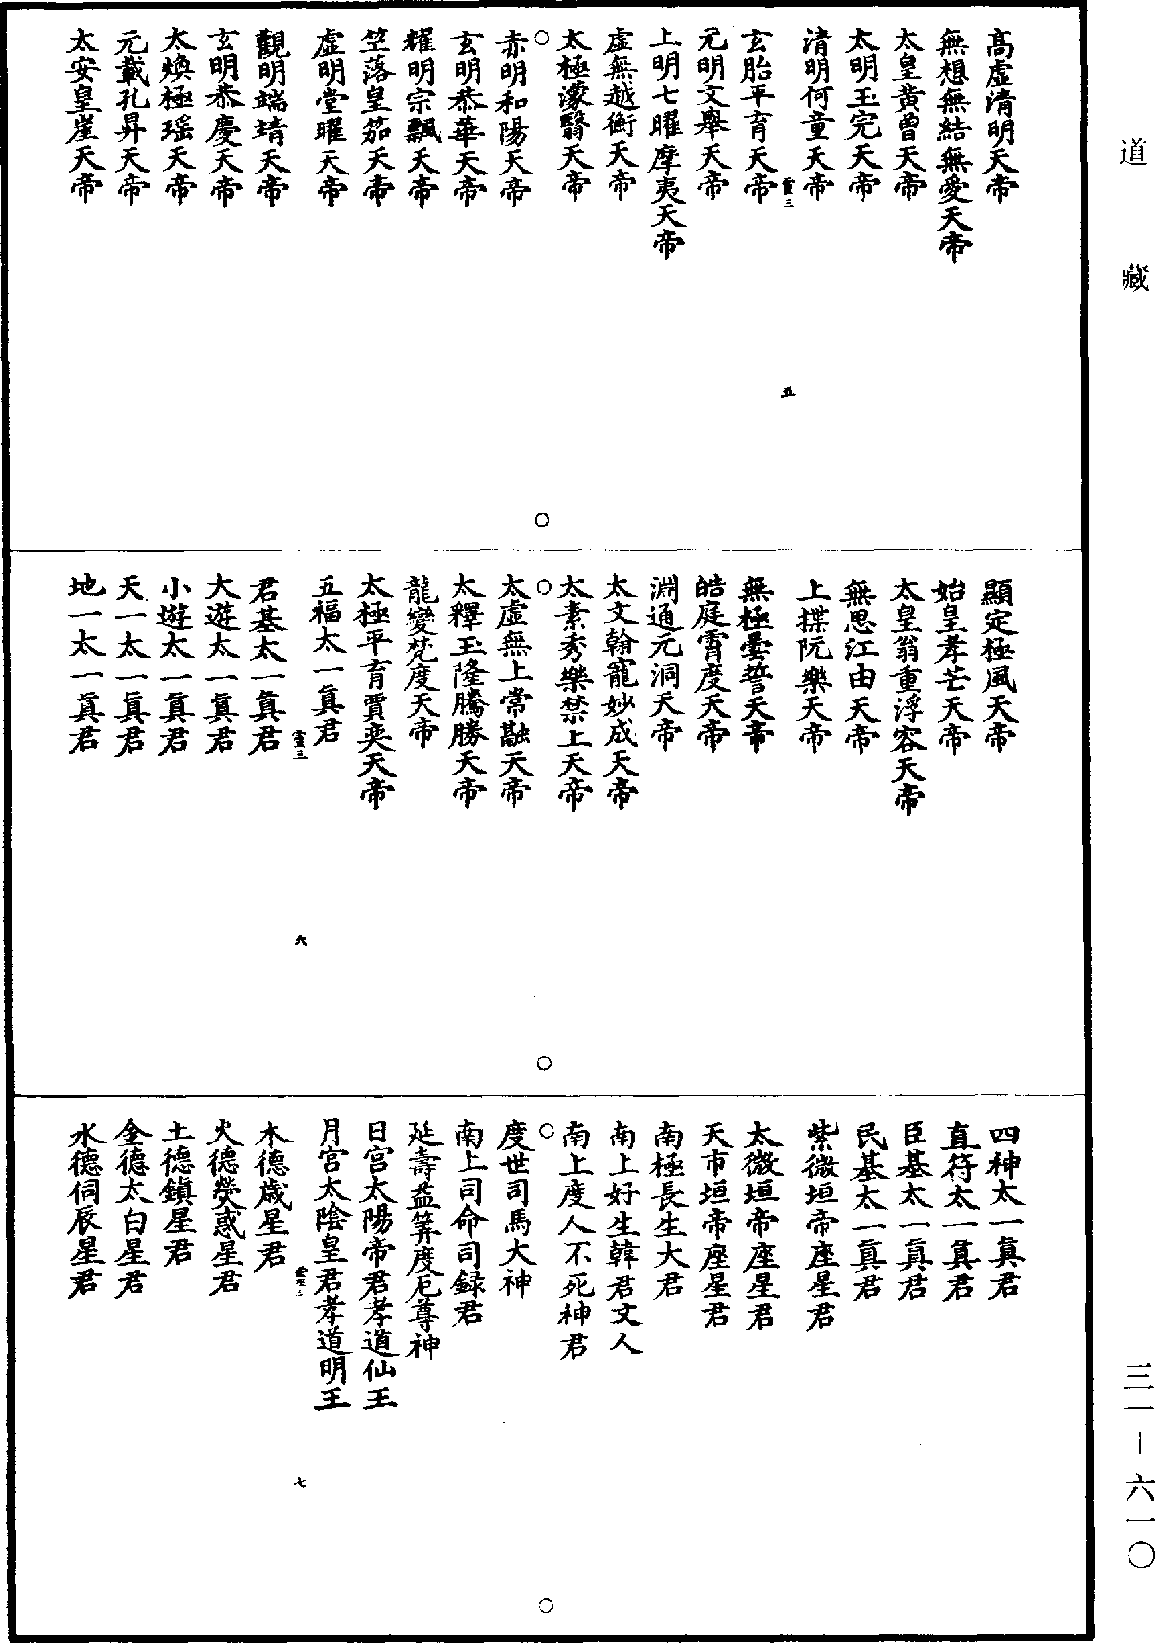 道藏
高虛清明天帝
無想無結無愛天帝
太皇黃曾天帝
太明玉完天帝
清明何童天帝
五
玄胎平育天帝
元明文舉天帝
上明七曜摩夷天帝
虛無越衡天帝
太極濛翳天帝
○ ○
赤明和陽天帝
玄明恭華天帝
耀明宗飄天帝
竺落皇笳天帝
虛明堂曜天帝
觀明端靖天帝
玄明恭慶天帝
太煥極瑶天帝
元載孔昇天帝
太安皇崖天帝
顯定極風天帝
始皇孝芒天帝
太皇翁重浮容天帝
無思江由天帝
上揲阮樂天帝
無極曇誓天帝
皓庭霄度天帝
淵通元洞天帝
太文翰寵妙成天帝
太素秀樂禁上天帝
○ ○
太虛無上常融天帝
太釋玉隆騰勝天帝
龍變梵度天帝
太極平育賈奕天帝
五福太一真君
六
君基太一真君
大遊太一真君
小遊太一真君
天一太一真君
地一太一真君
四神太一真君
直符太一真君
臣基太一真君
民基太一真君
紫微垣帝座星君
太微垣帝座星君
天市垣帝座星君
南極長生大君
南上好生韓君丈人
南上度人不死神君
○ ○
度世司馬大神
南上司命司録君
延壽益筭度厄尊神
日宮太陽帝君孝道仙王
月宮太陰皇君孝道明王
七
木德歲星君
火德熒惑星君
土德鎮星君
金德太白星君
水德伺辰星君
三一—六一〇